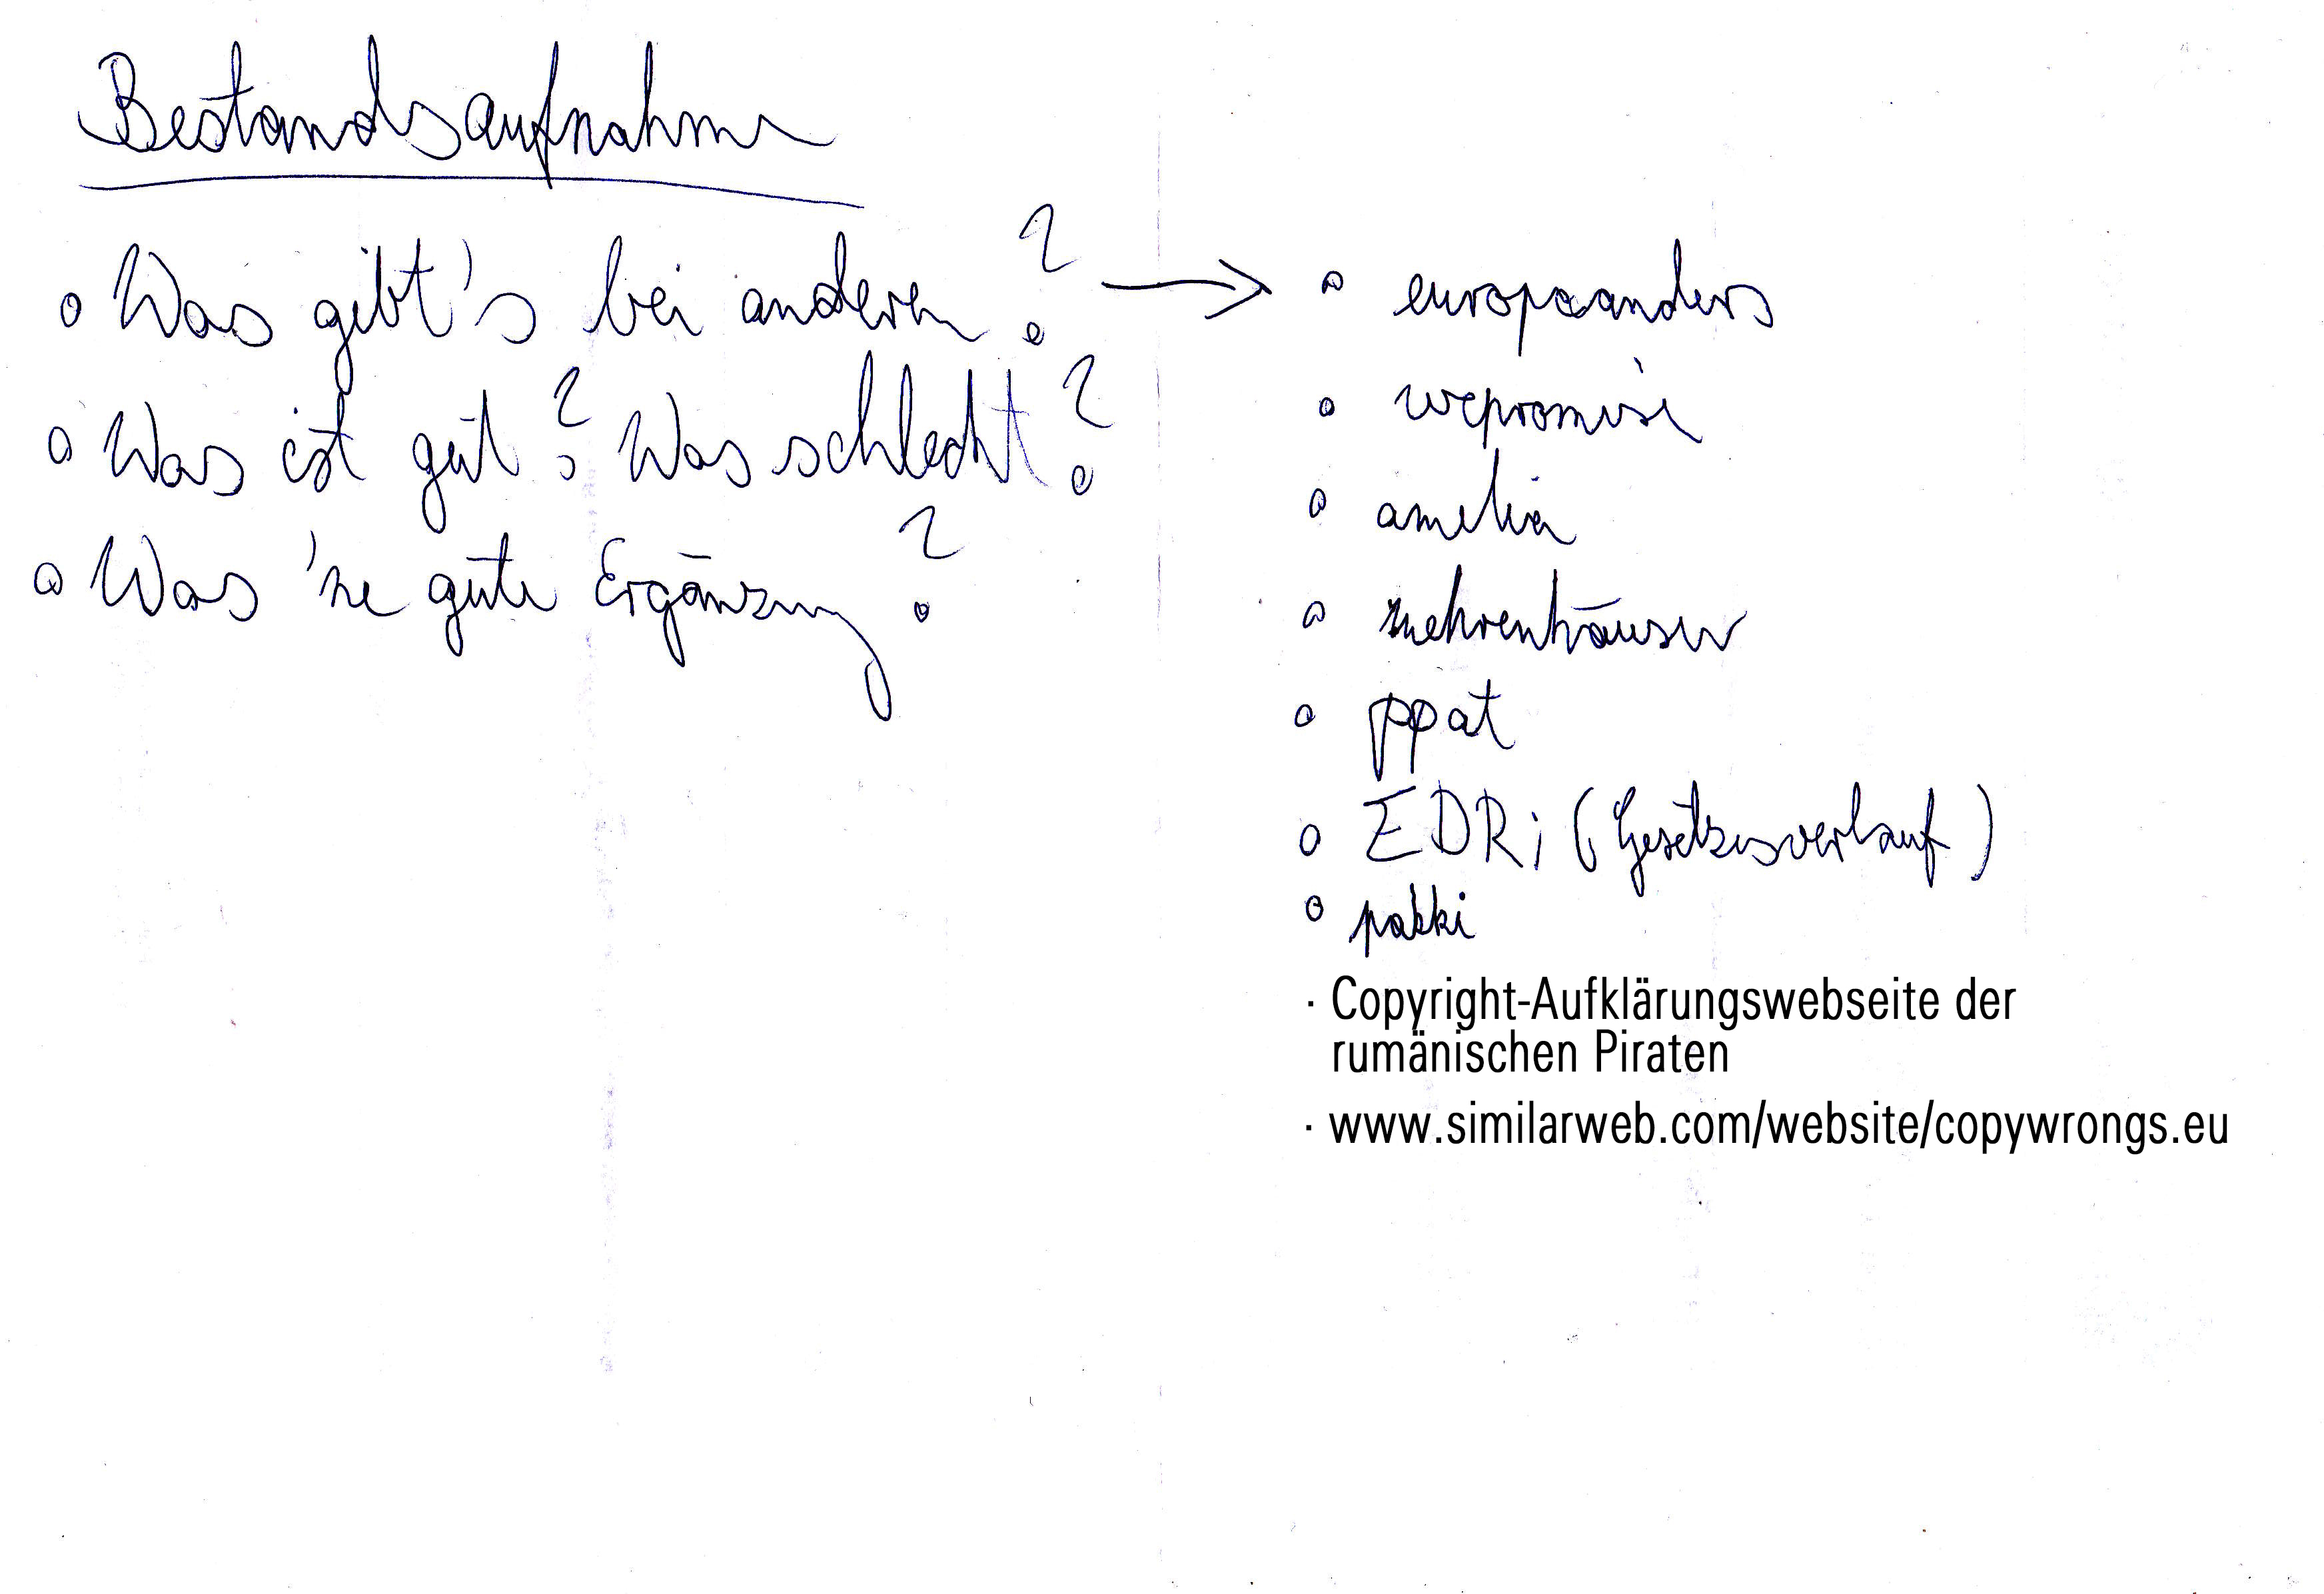 Bestandsaufnahme
◦ Was gibt's bei anderen? →
◦ Was ist gut? Was schlecht?
◦ Was 'ne gute Ergänzung?
◦ europaanders
◦ wepromise
◦ amelia
◦ mehrenhäuser
◦ ppat
◦ EDRi (Gesetzesverlauf)
◦ pakki
· Copyright-Aufklärungswebseite der
rumänischen Piraten
· www.similarweb.com/website/copywrongs.eu